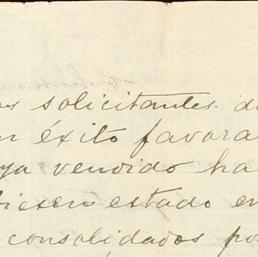 os solicitantes. d
n éxito favora
ya vendido ha
biesen estado en
consolidados po